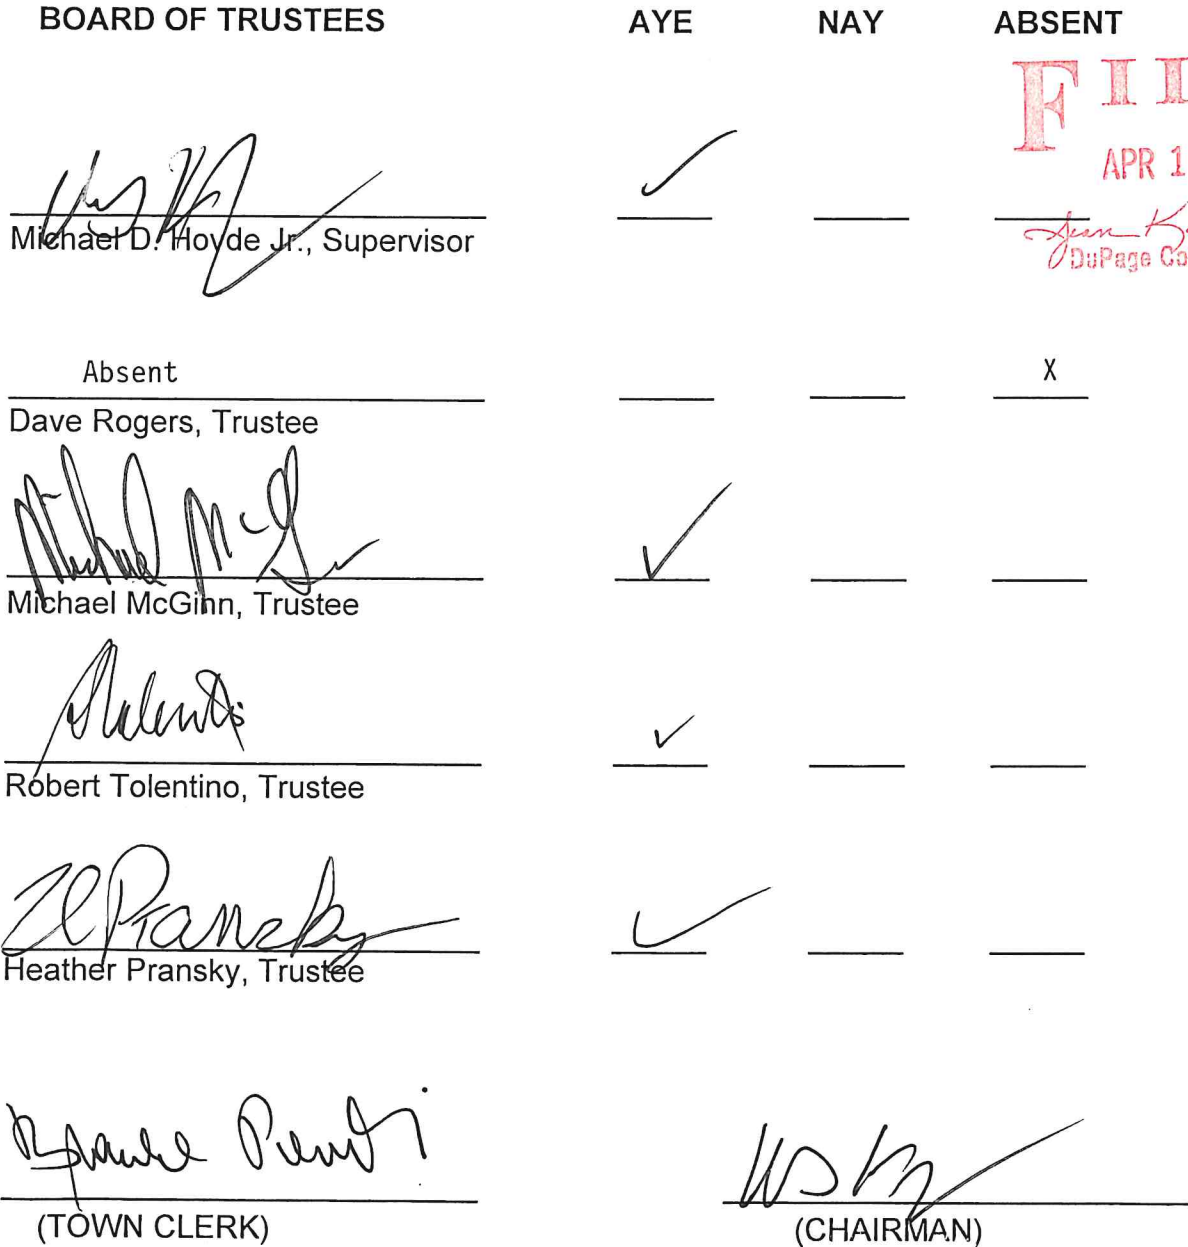 BOARD OF TRUSTEES AYE NAY ABSENT
APR 1
Michael D. Hovde Jr., Supervisor
DuPage Co
Absent X
Dave Rogers, Trustee
Michael McGinn, Trustee
Robert Tolentino, Trustee
H Pransky
Heather Pransky, Trustee
(TOWN CLERK) (CHAIRMAN)